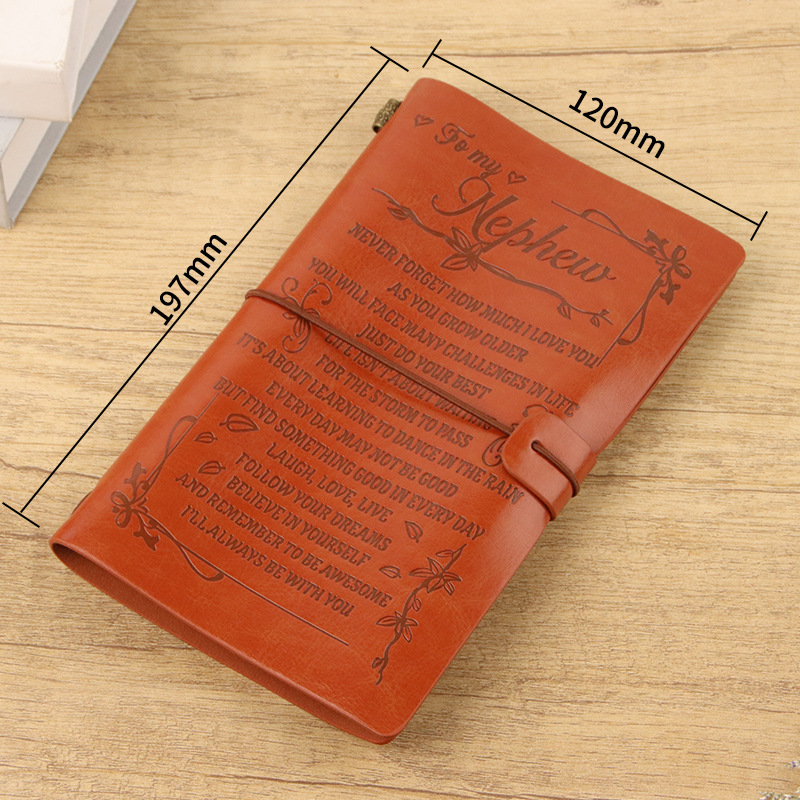 120mm
197mm
To my
Nephew
NEVER FORGET HOW MUCH I LOVE YOU
AS YOU GROW OLDER
YOU WILL FACE MANY CHALLENGES IN LIFE
JUST DO YOUR BEST
LIFE ISN'T ABOUT WAITING
FOR THE STORM TO PASS
IT'S ABOUT LEARNING TO DANCE IN THE RAIN
EVERY DAY MAY NOT BE GOOD
BUT FIND SOMETHING GOOD IN EVERY DAY
LAUGH, LOVE, LIVE
FOLLOW YOUR DREAMS
BELIEVE IN YOURSELF
AND REMEMBER TO BE AWESOME
I'LL ALWAYS BE WITH YOU